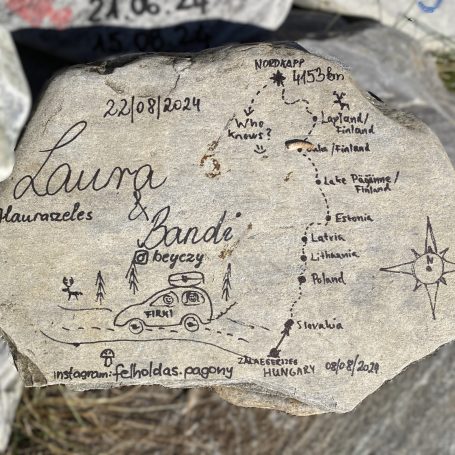 21.06.24
15.08.24
22/08/2024
NORDKAPP
4153 km
Who
knows?
Lapland/
Finland
/Finland
Lake Päijänne/
Finland
Estonia
Latvia
Lithuania
Poland
Slovakia
ZALAEGERSZEG
HUNGARY 08/08/2024
Laura
&
Bandi
beyczy
FIRKI
instagram: felholdas.pagony
N